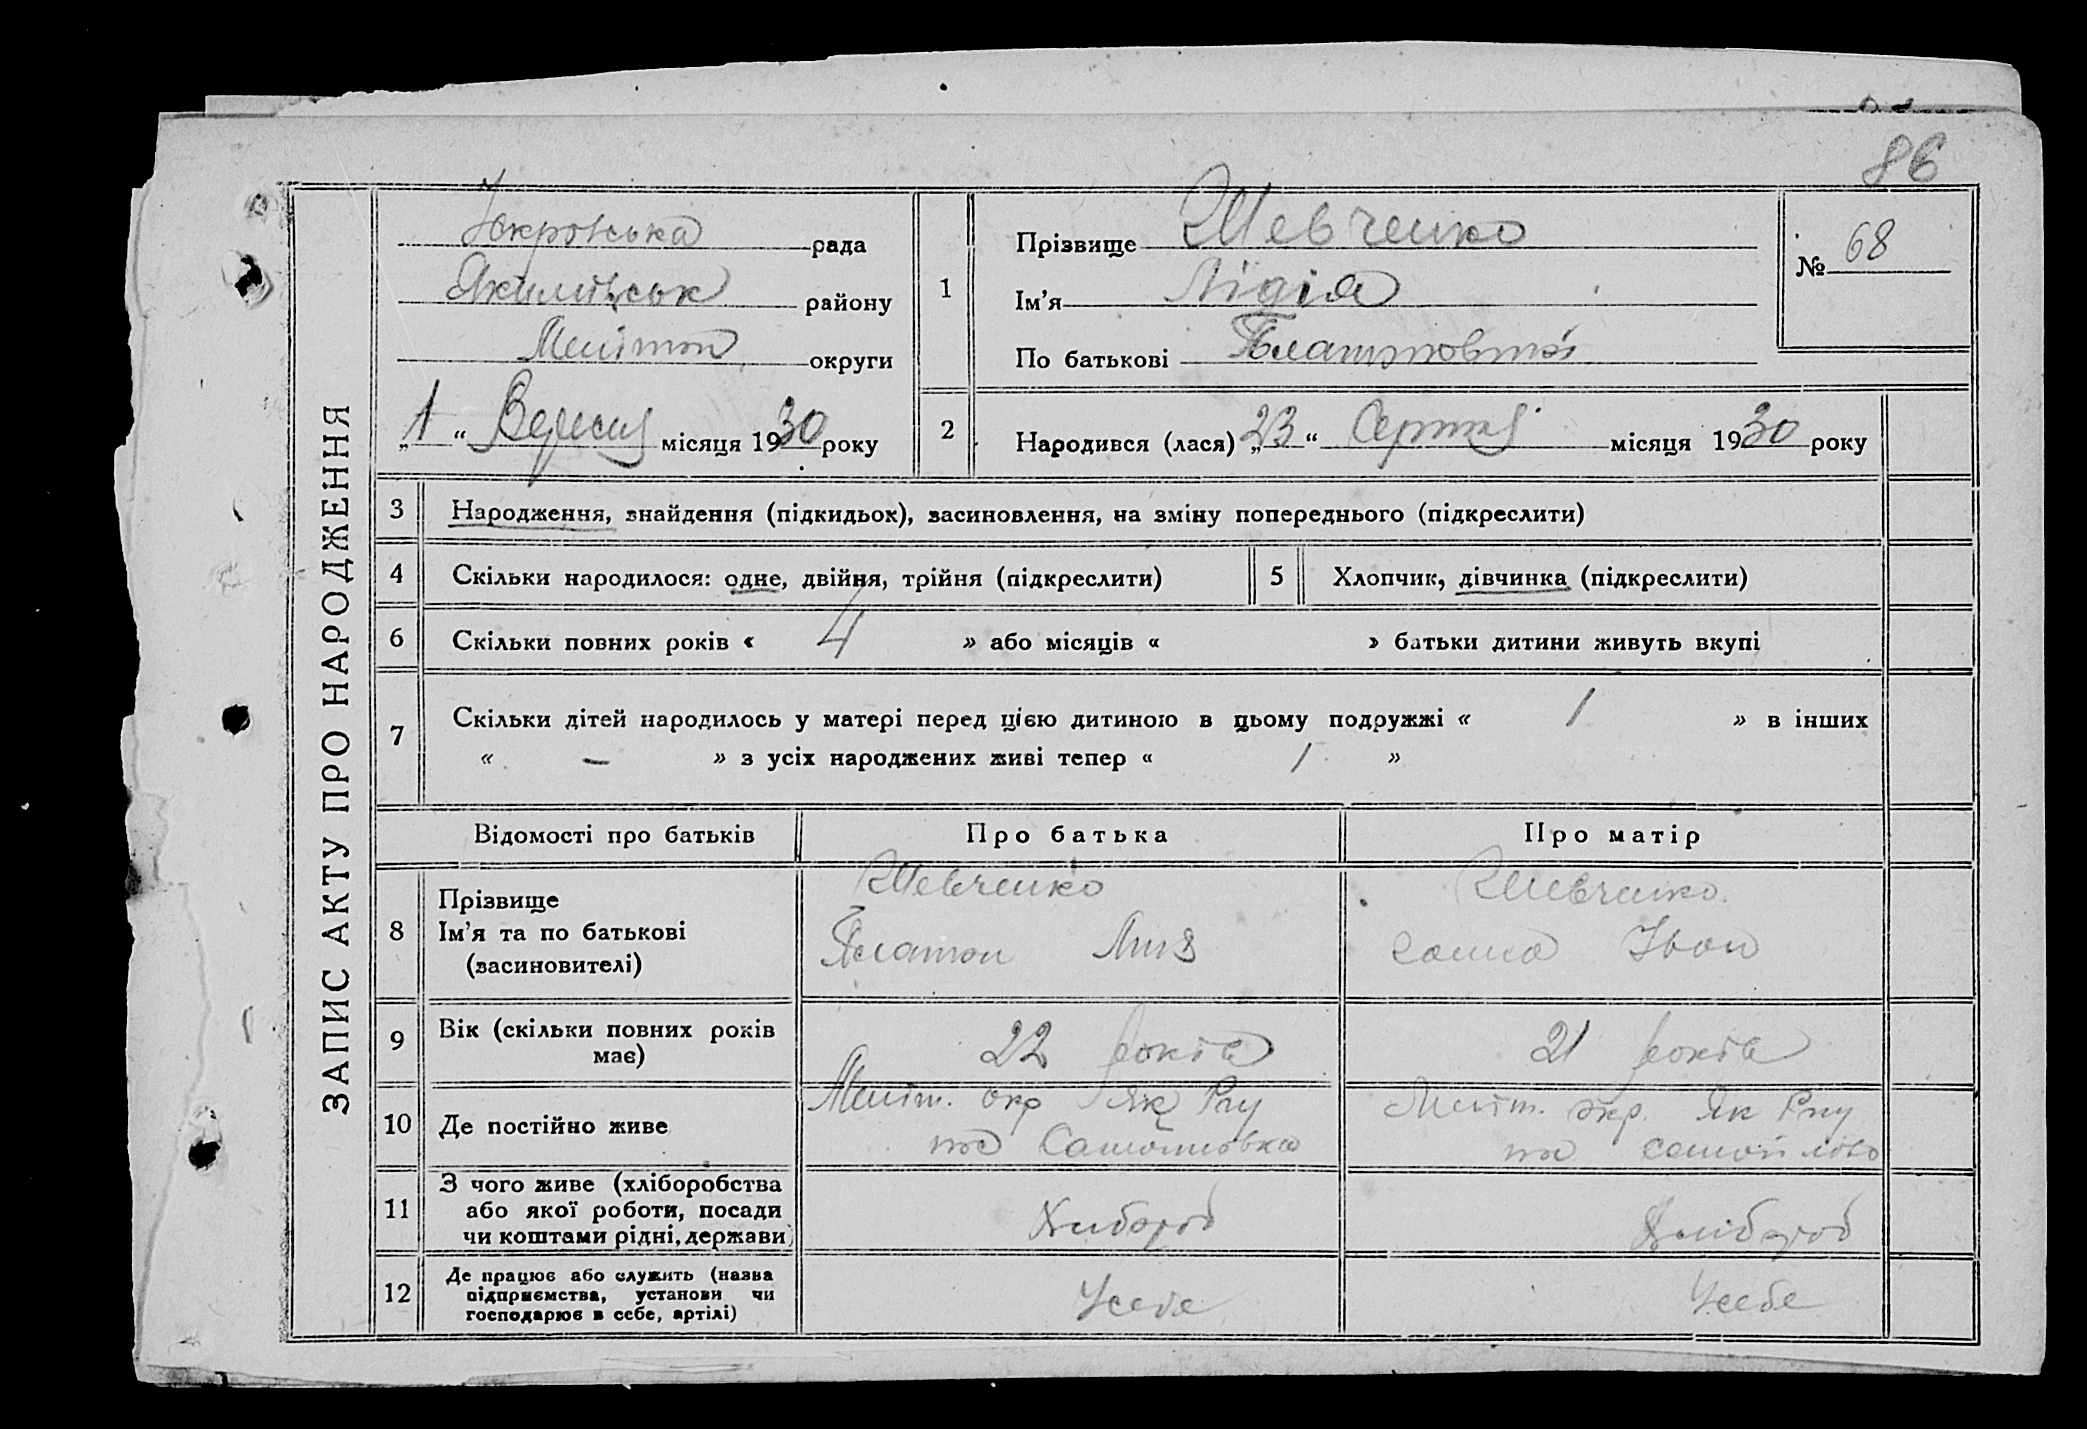 86
рада
району
Мелітоп округи
„1“ Вересня місяця 1930 року
1
Прізвище Шевченко
Ім'я Лідія
По батькові Платоновна
№ 68
2
Народився (лася) „23“ Серпня місяця 1930 року
ЗАПИС АКТУ ПРО НАРОДЖЕННЯ
3 Народження, знайдення (підкидьок), засиновлення, на зміну попереднього (підкреслити)
4 Скільки народилося: одне, двійня, трійня (підкреслити)
5 Хлопчик, дівчинка (підкреслити)
6 Скільки повних років « 4 » або місяців « » батьки дитини живуть вкупі
7 Скільки дітей народилось у матері перед цією дитиною в цьому подружжі « 1 » в інших
« — » з усіх народжених живі тепер « 1 »
Відомості про батьків Про батька Про матір
8 Прізвище
Ім'я та по батькові
(засиновителі)
Шевченко
Платон
Шевченко
Іван
9 Вік (скільки повних років
має)
22 років
21 років
10 Де постійно живе
Меліт. окр Як Рну
Самойловка
Меліт. окр. Як Рну
Самойлов
11 З чого живе (хліборобства
або якої роботи, посади
чи коштами рідні, держави)
Хлибороб
Хлібороб
12 Де працює або служить (назва
підприємства, установи чи
господарює в себе, артілі)
Усебе
Усебе